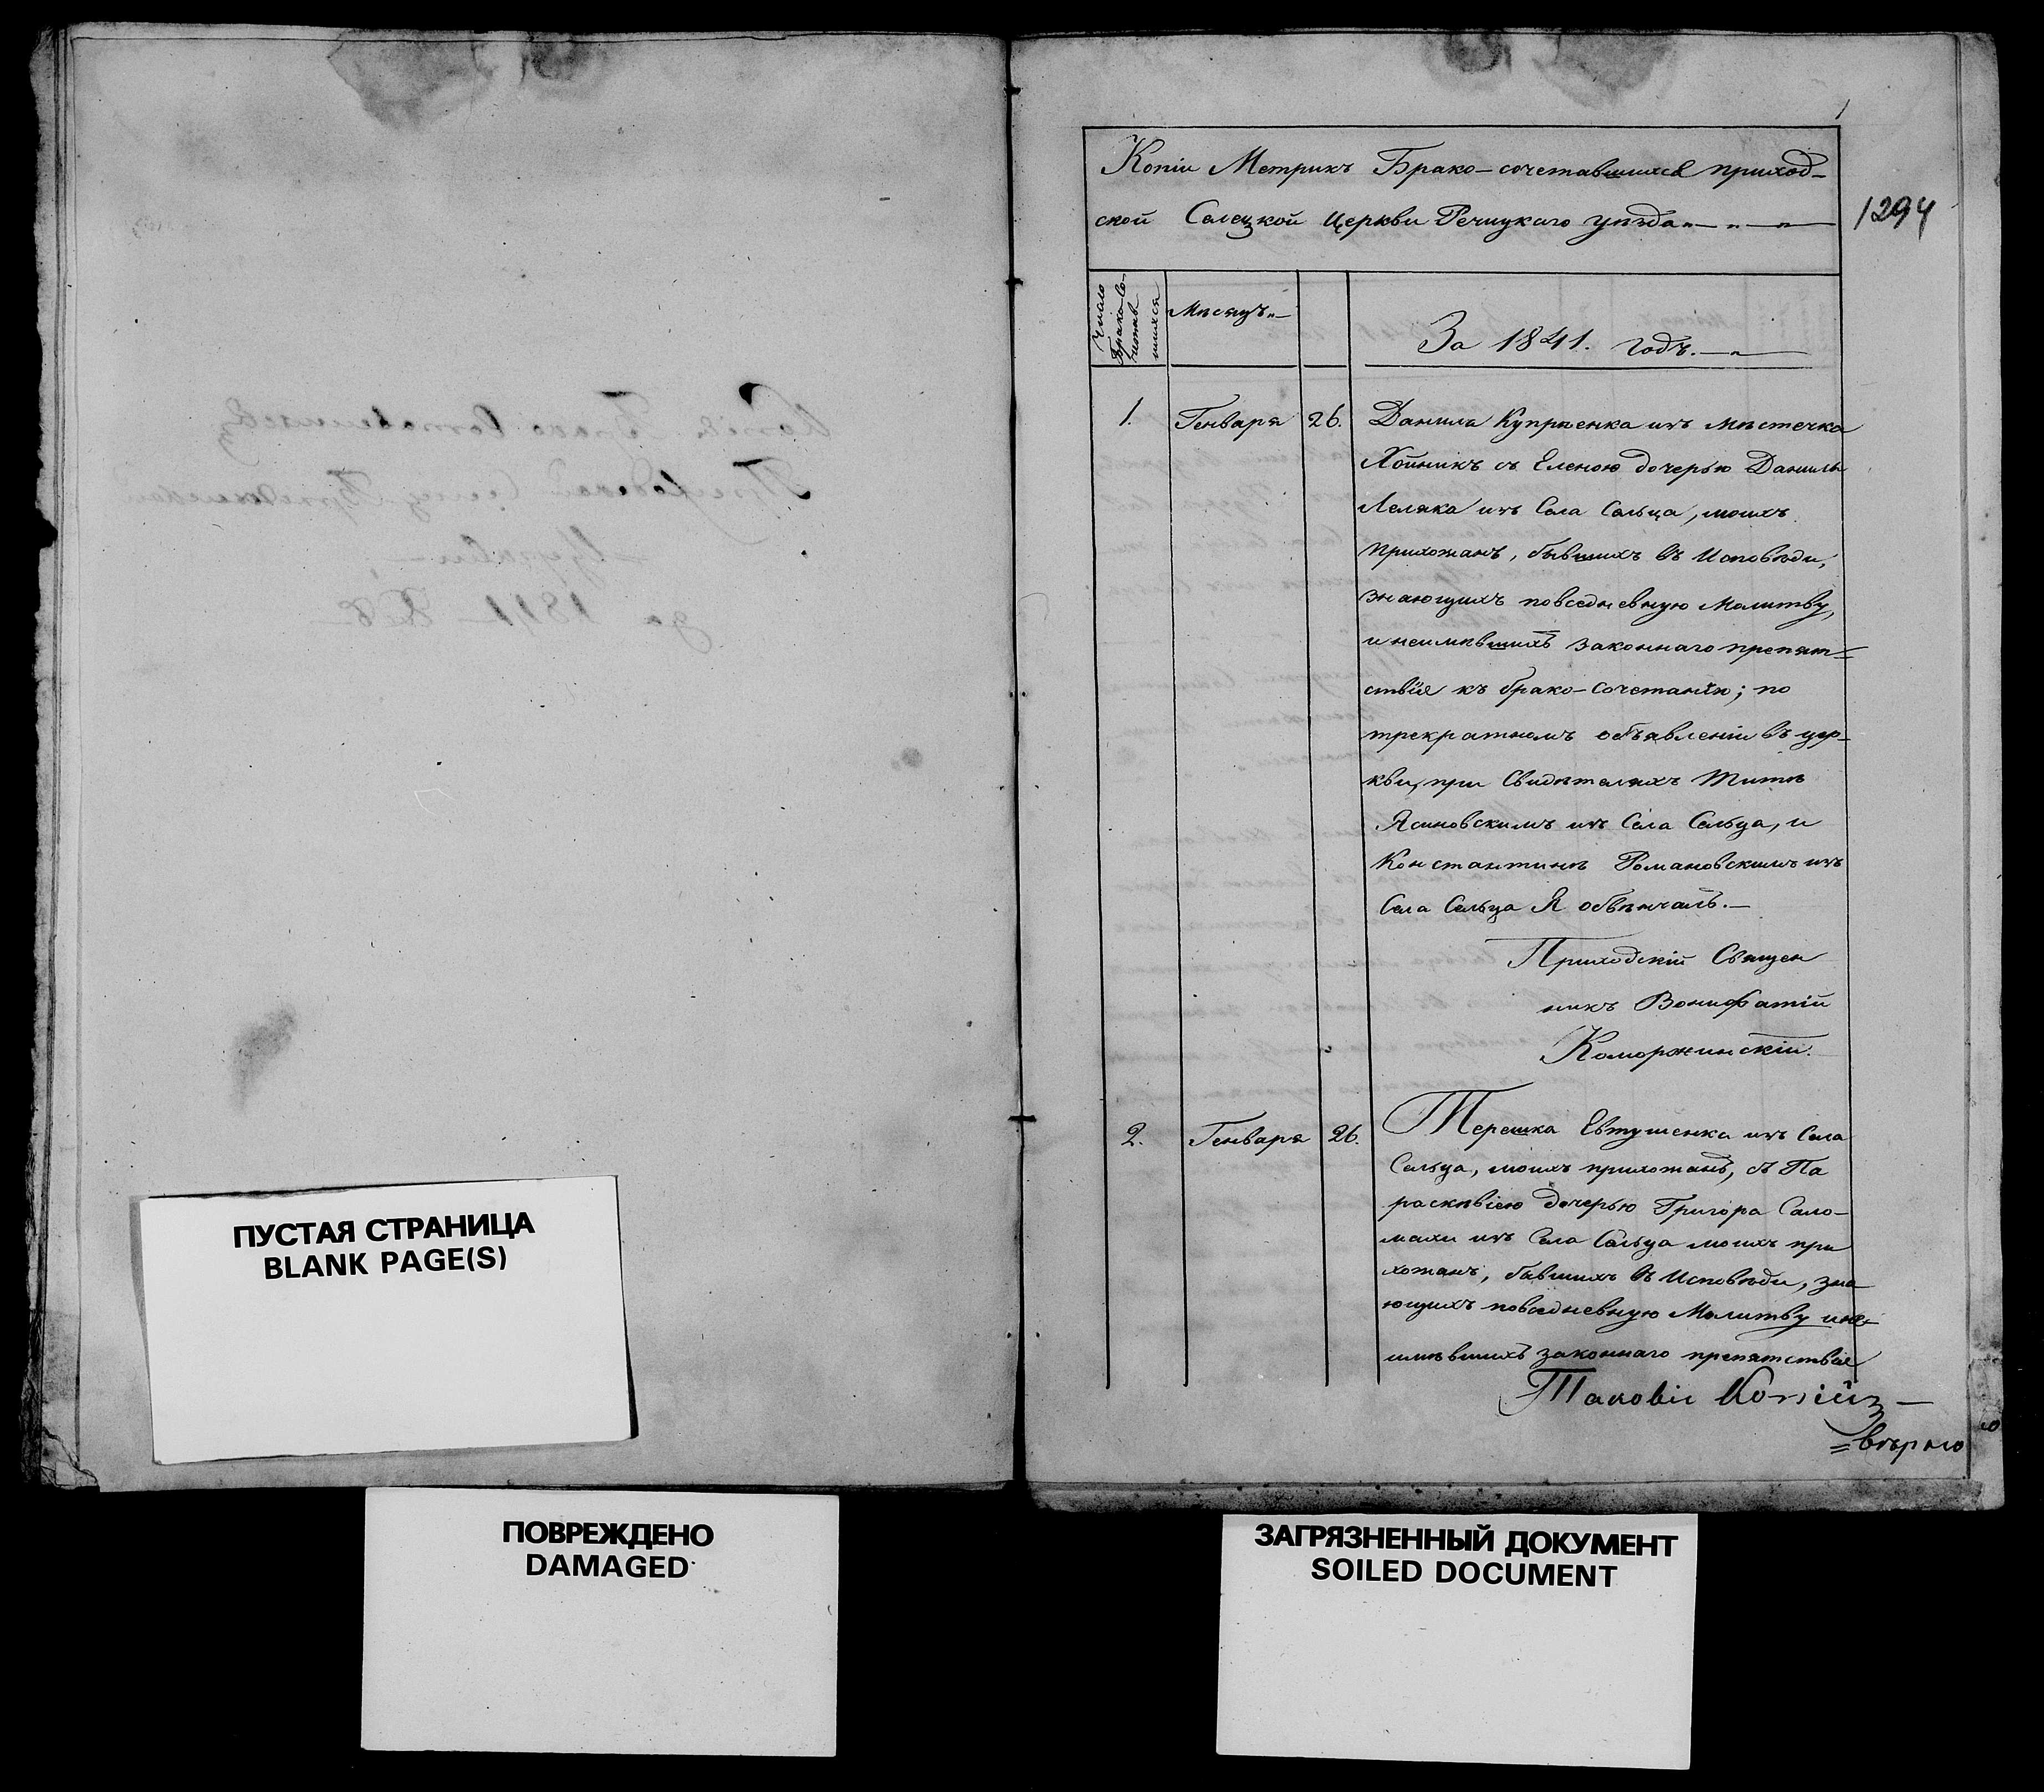 ПУСТАЯ СТРАНИЦА
BLANK PAGE(S)
ПОВРЕЖДЕНО
DAMAGED
1
Копіи Метрикъ Брако-сочетавшихся приход-
ской Селецкой Церкви Речицкаго уѣзда
1294
Число Брако-сочетавшихся
Мѣсяцъ
За 1841. годъ.
1. Генваря 26. Данила Купрѣенка изъ мѣстечка
Хойникъ съ Еленою дочерью Данилы
Леляка изъ Села Сельца, моихъ
прихожанъ, бывшихъ въ Исповѣди,
знающихъ повседневную Молитву,
и неимѣвшихъ законнаго препят-
ствія къ брако-сочетанію; по
трекратномъ объявленіи въ цер-
кви, при Свидѣтеляхъ Титѣ
Ясиновскимъ изъ Села Сельца, и
Константинѣ Романовскимъ изъ
Села Сельца Я обвѣнчалъ.—
Приходскій Священ
никъ Вонифатій
Коморжинскій.
2. Генваря 26. Терешка Евтушенка изъ Села
Сельца, моихъ прихожанъ, съ Па
расквіею дочерью Григора Сало-
махи изъ Села Сельца моихъ при
хожанъ, бывшихъ въ Исповѣди, зна
ющихъ повседневную Молитву и не-
имѣвшихъ законнаго препятствія
Таковіи Копіи з—
=вѣрно
ЗАГРЯЗНЕННЫЙ ДОКУМЕНТ
SOILED DOCUMENT